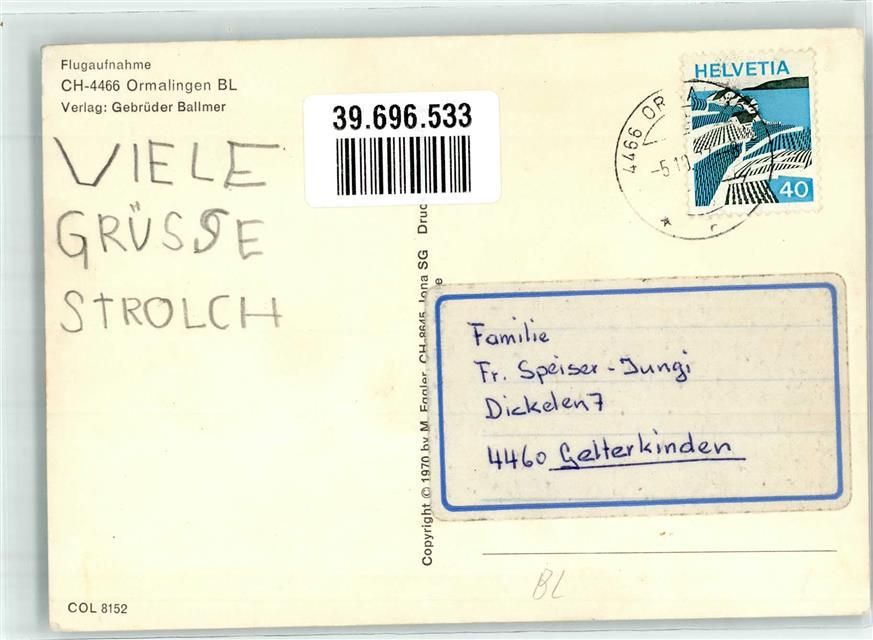 Flugaufnahme
CH-4466 Ormalingen BL
Verlag: Gebrüder Ballmer
VIELE
GRÜSSE
STROLCH
39.696.533
HELVETIA
40
4466 OR
-5.10.
Copyright © 1970 by M. Eggler, CH-8645 Jona SG Druc
Familie
Fr. Speiser-Jungi
Dickelen 7
4460 Gelterkinden
BL
COL 8152